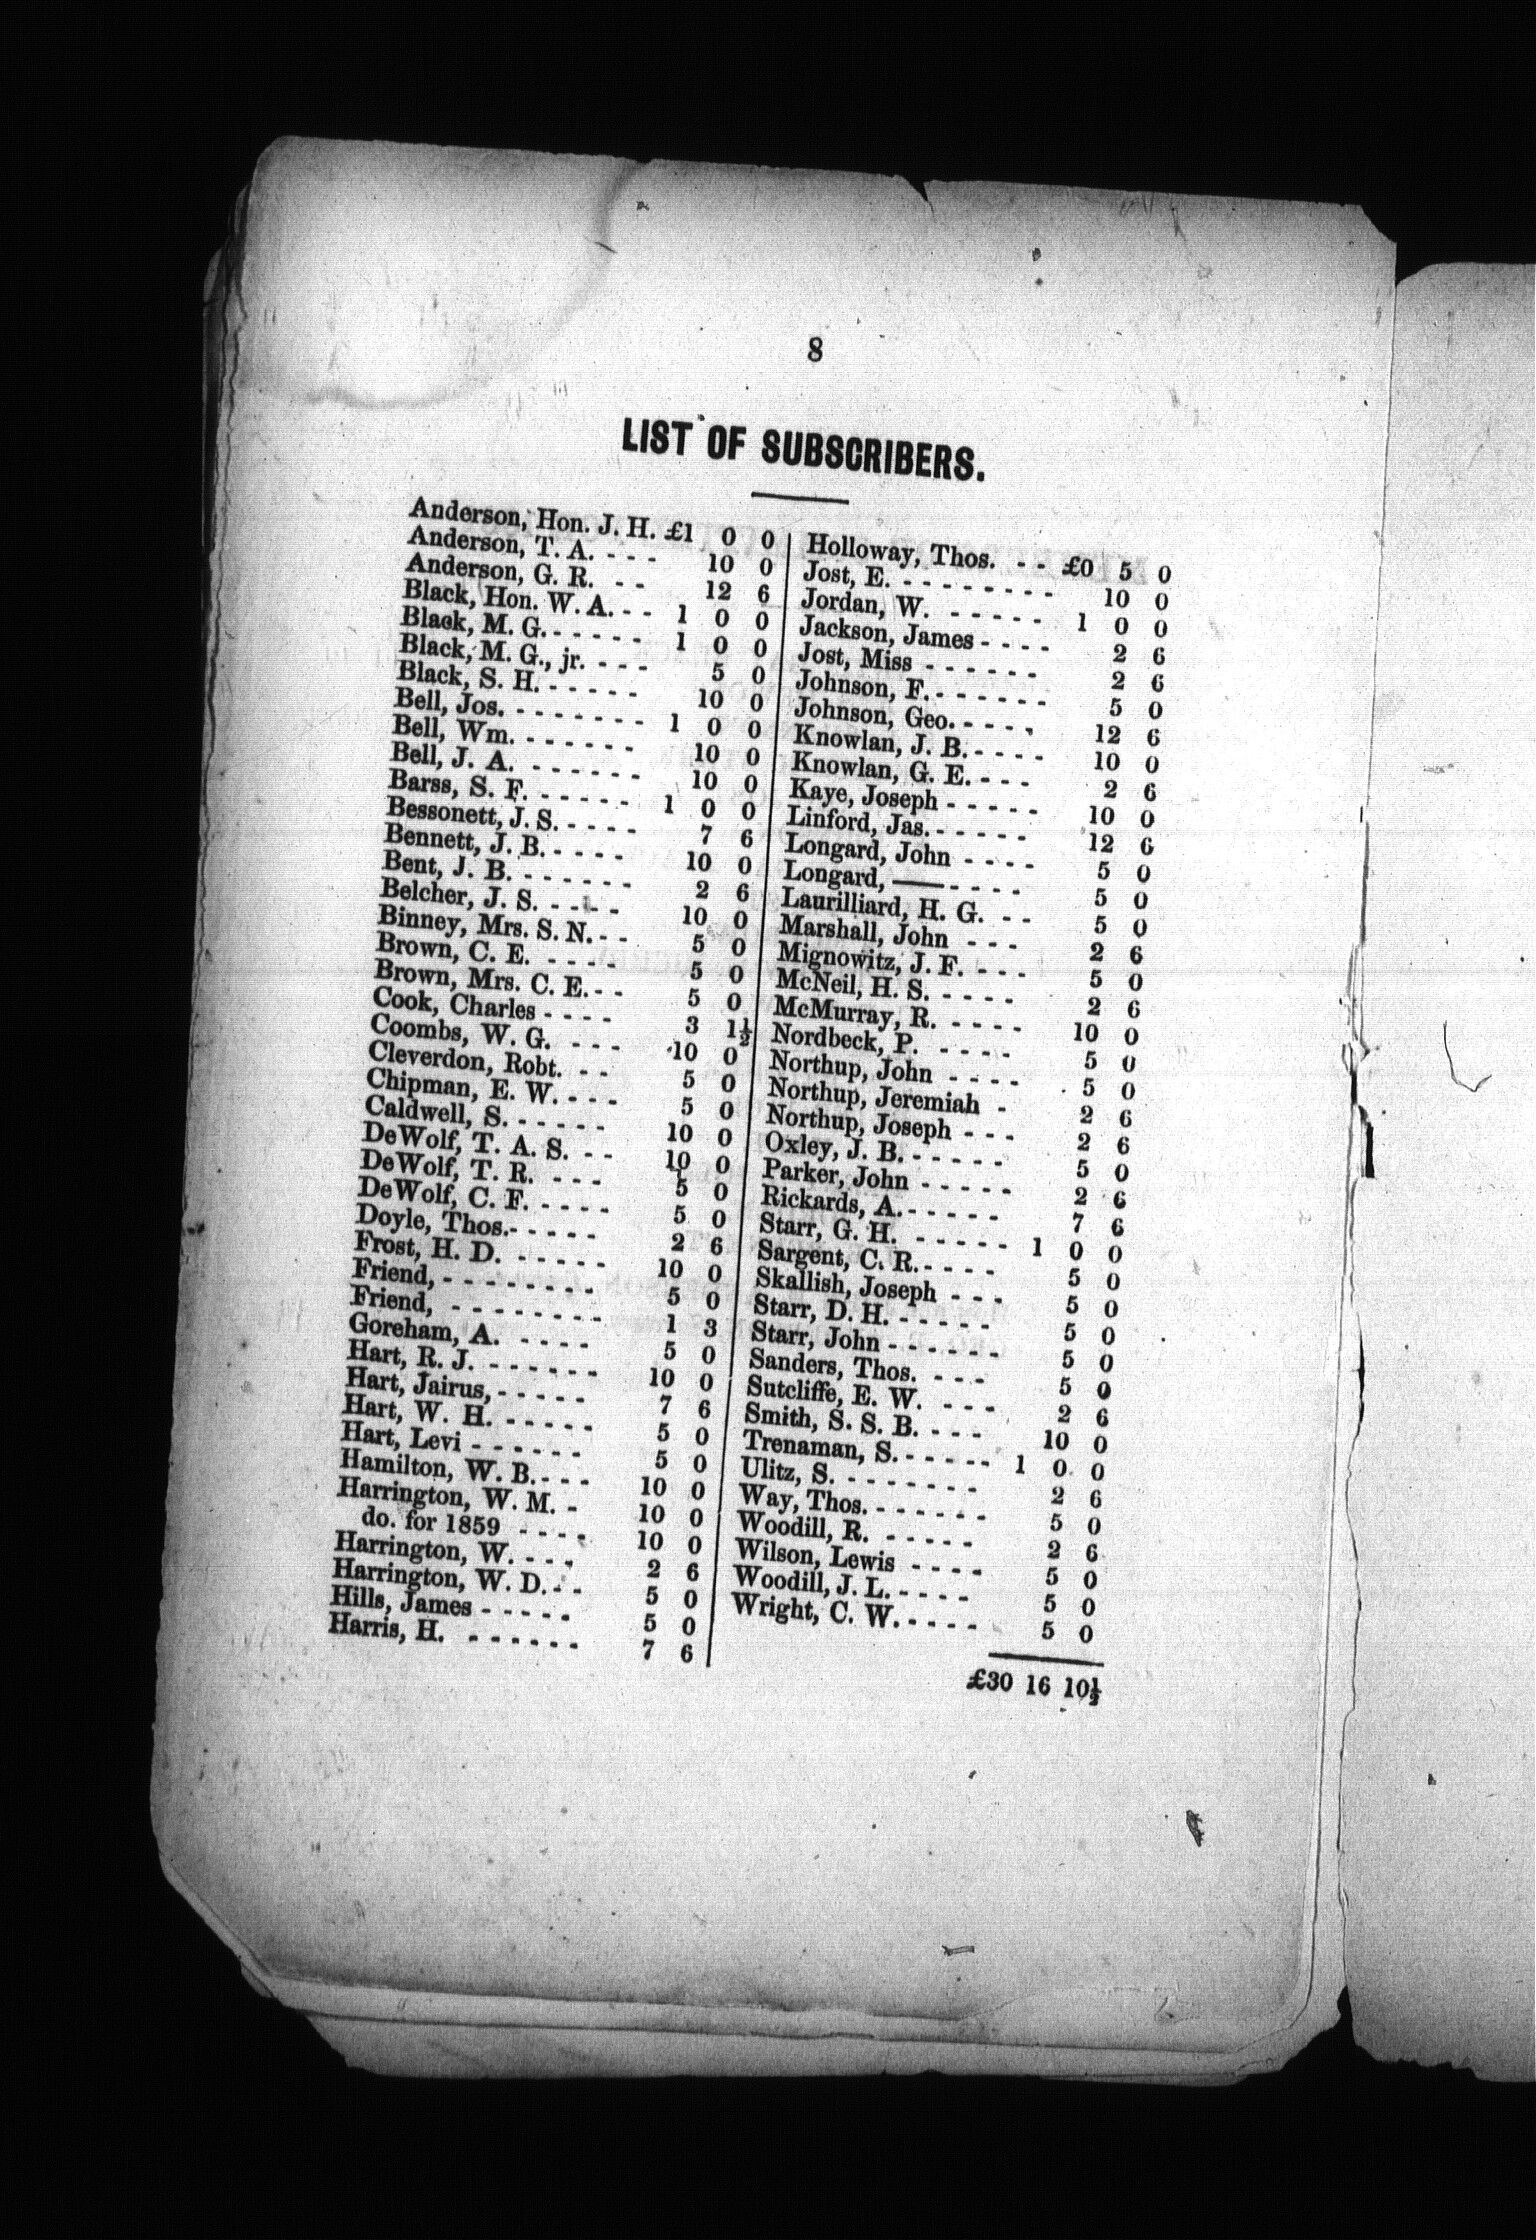 8
LIST OF SUBSCRIBERS.
Anderson, Hon. J. H. £1 0 0
Anderson, T. A. - - - 10 0
Anderson, G. R. - - 12 6
Black, Hon. W. A. - - 1 0 0
Black, M. G. - - - - - 1 0 0
Black, M. G., jr. - - - 5 0
Black, S. H. - - - - - 10 0
Bell, Jos. - - - - - - - 1 0 0
Bell, Wm. - - - - - - 10 0
Bell, J. A. - - - - - - 10 0
Barss, S. F. - - - - - 1 0 0
Bessonett, J. S. - - - - 7 6
Bennett, J. B. - - - - 10 0
Bent, J. B. - - - - - - 2 6
Belcher, J. S. - - - - 10 0
Binney, Mrs. S. N. - - 5 0
Brown, C. E. - - - - 5 0
Brown, Mrs. C. E. - - 5 0
Cook, Charles - - - - 3 1½
Coombs, W. G. - - - 10 0
Cleverdon, Robt. - - 5 0
Chipman, E. W. - - - 5 0
Caldwell, S. - - - - - 10 0
DeWolf, T. A. S. - - 10 0
DeWolf, T. R. - - - 5 0
DeWolf, C. F. - - - - 5 0
Doyle, Thos. - - - - - 2 6
Frost, H. D. - - - - - 10 0
Friend, - - - - - - - - 5 0
Friend, - - - - - - - - 1 3
Goreham, A. - - - - 5 0
Hart, R. J. - - - - - - 10 0
Hart, Jairus, - - - - - 7 6
Hart, W. H. - - - - - 5 0
Hart, Levi - - - - - - 5 0
Hamilton, W. B. - - - 10 0
Harrington, W. M. - 10 0
do. for 1859 - - - - 10 0
Harrington, W. - - - 2 6
Harrington, W. D. - - 5 0
Hills, James - - - - - 5 0
Harris, H. - - - - - - 7 6
Holloway, Thos. - - £0 5 0
Jost, E. - - - - - - - - 10 0
Jordan, W. - - - - - 1 0 0
Jackson, James - - - - 2 6
Jost, Miss - - - - - - 2 6
Johnson, F. - - - - - - 5 0
Johnson, Geo. - - - - 12 6
Knowlan, J. B. - - - - 10 0
Knowlan, G. E. - - - 2 6
Kaye, Joseph - - - - - 10 0
Linford, Jas. - - - - - 12 6
Longard, John - - - - 5 0
Longard, —— - - - - 5 0
Laurilliard, H. G. - - 5 0
Marshall, John - - - 2 6
Mignowitz, J. F. - - - 5 0
McNeil, H. S. - - - - 2 6
McMurray, R. - - - - 10 0
Nordbeck, P. - - - - 5 0
Northup, John - - - - 5 0
Northup, Jeremiah - 2 6
Northup, Joseph - - - 2 6
Oxley, J. B. - - - - - 5 0
Parker, John - - - - - 2 6
Rickards, A. - - - - - 7 6
Starr, G. H. - - - - - - 1 0 0
Sargent, C. R. - - - - 5 0
Skallish, Joseph - - - 5 0
Starr, D. H. - - - - - 5 0
Starr, John - - - - - - 5 0
Sanders, Thos. - - - 5 0
Sutcliffe, E. W. - - - 2 6
Smith, S. S. B. - - - 10 0
Trenaman, S. - - - - - 1 0 0
Ulitz, S. - - - - - - - 2 6
Way, Thos. - - - - - - 5 0
Woodill, R. - - - - - 2 6
Wilson, Lewis - - - - 5 0
Woodill, J. L. - - - - 5 0
Wright, C. W. - - - - 5 0
£30 16 10½